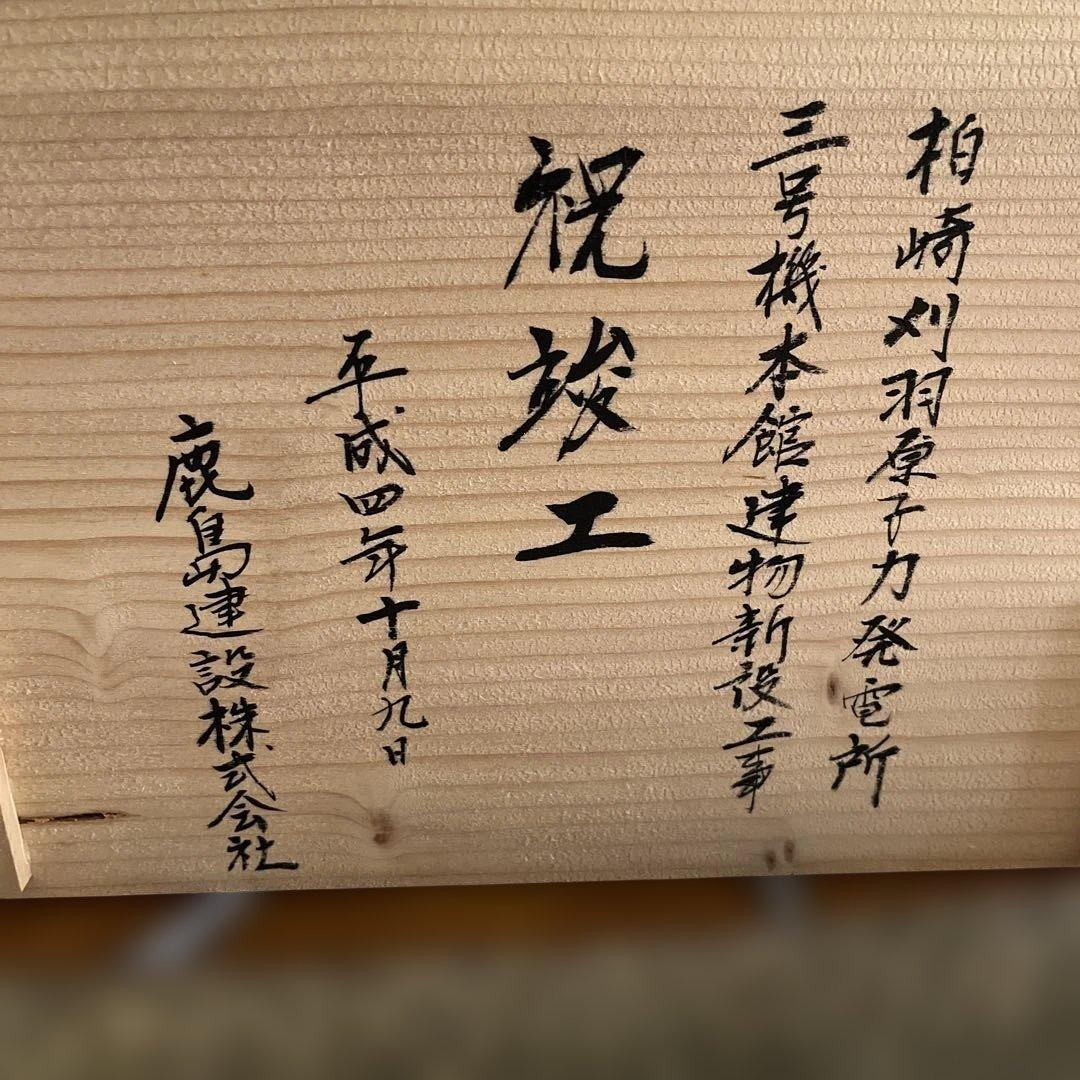 柏崎刈羽原子力発電所
三号機本館建物新設工事
祝竣工
平成四年十月九日
鹿島建設株式会社